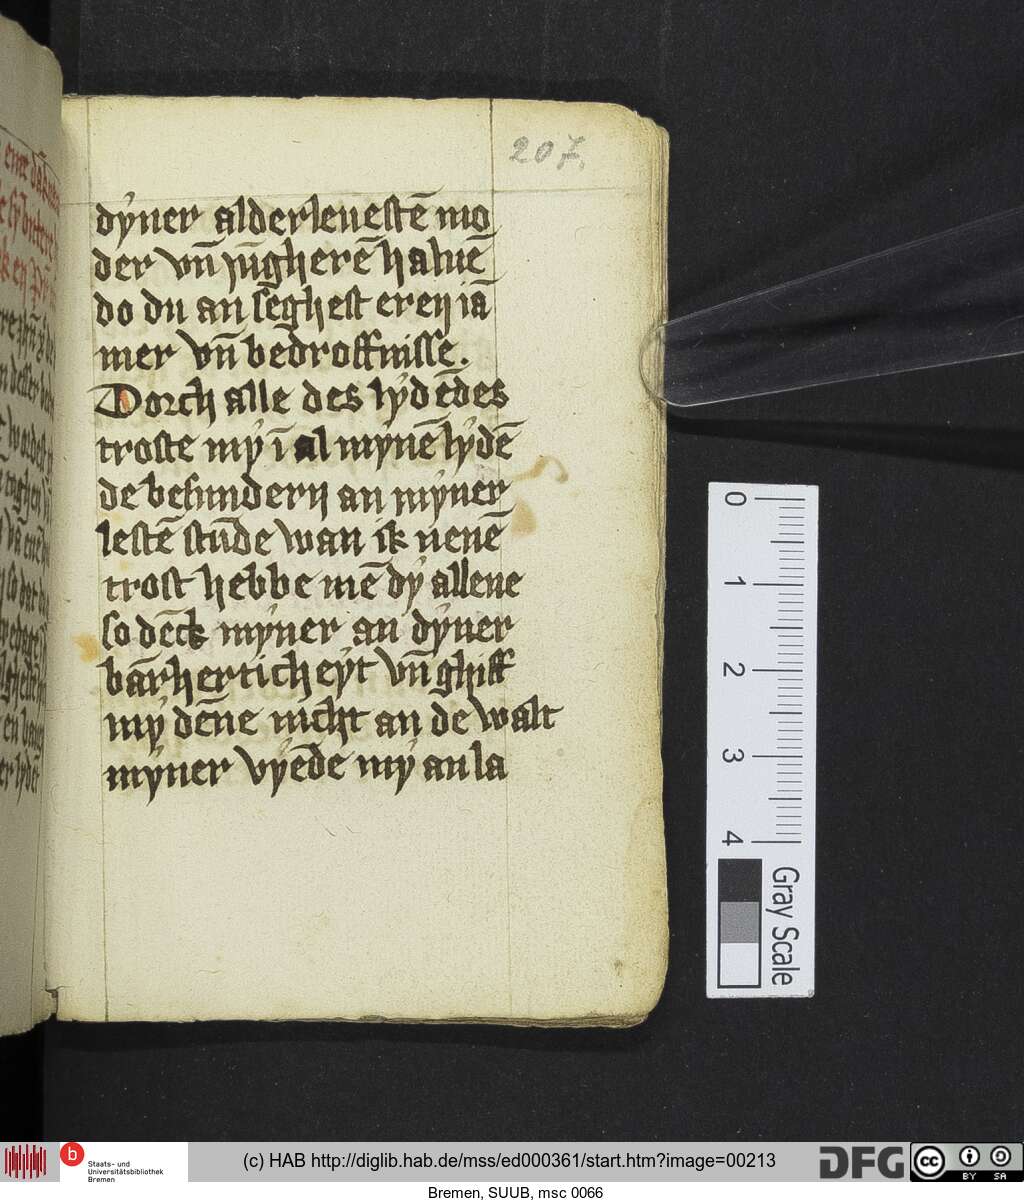 207.
dẏner alderleuestē mo
der vn̄ jūgherē haluē
do du an sēghest eren iā
mer vn̄ bedroffnisse.
Dorch alle des lẏdēdes
troste mẏ ī al mẏnē lẏdē
de besundern an mẏner
lestē stūde wan ik nenē
trost hebbe mē dẏ allene
so dēck mẏner an dẏner
bārherticheẏt vn̄ ghiff
mẏ dēne nicht an de walt
mẏner vẏēde mẏ an la
0
1
2
3
4
Gray Scale
b
Staats- und
Universitätsbibliothek
Bremen
(c) HAB http://diglib.hab.de/mss/ed000361/start.htm?image=00213
DFG
cc
BY SA
Bremen, SUUB, msc 0066